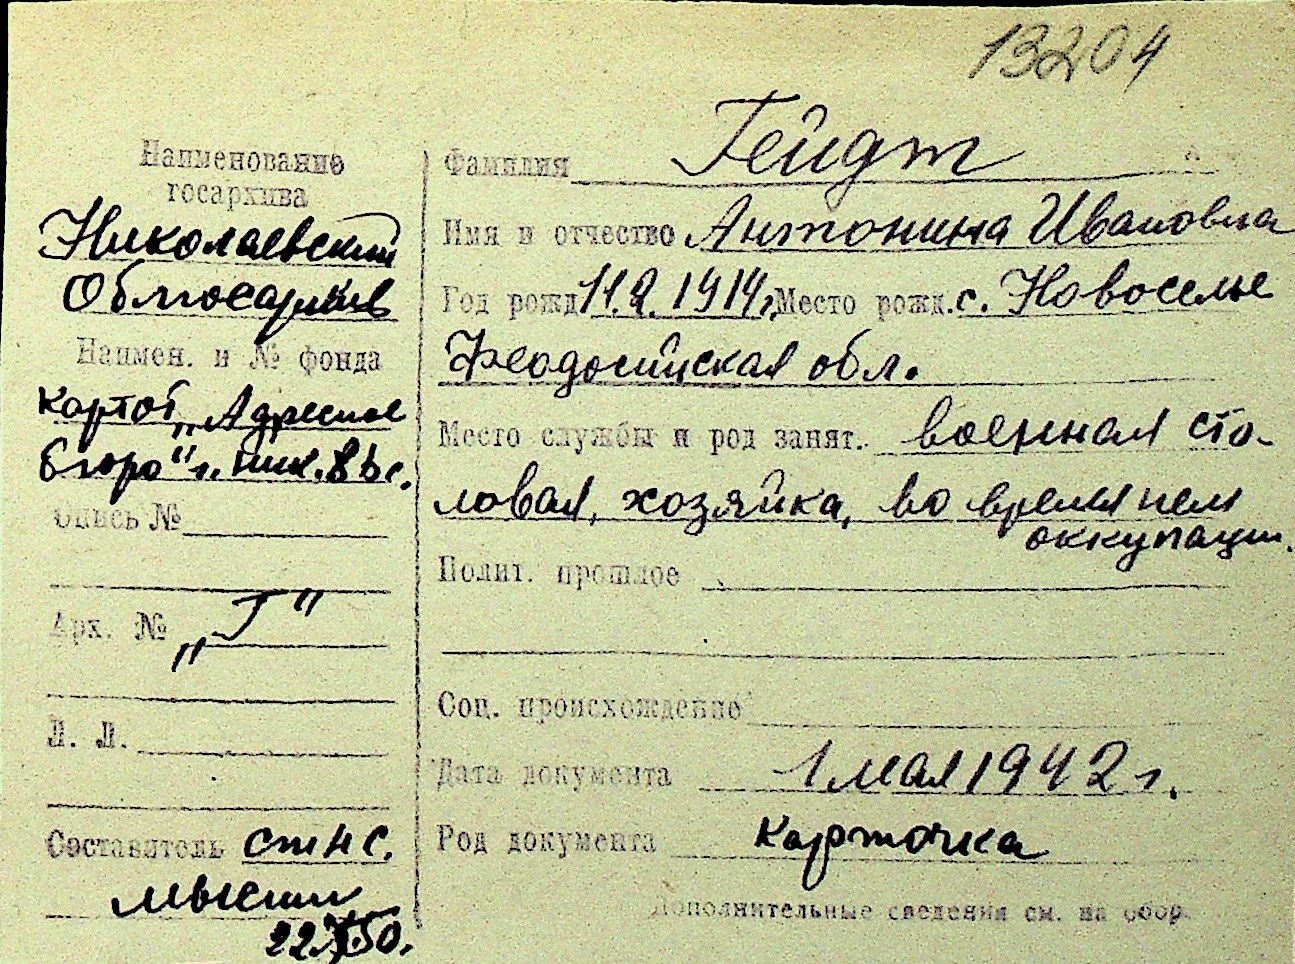 13204
Наименование
госархива
Николаевский
Облгосархив
Наимен. и № фонда
картот. „Адресное
бюро" г. Ник.
Опись №
Арх. № „Г"
Л. Л.
Составитель ст н с.
22. 50.
Фамилия Гейдт
Имя и отчество Антонина Ивановна
Год рожд 11.2.1914г. Место рожд. с. Новоселье
Феодосийская обл.
Место службы и род занят. военная сто-
ловая, хозяйка, во время нем
оккупации.
Полит. прошлое
Соц. происхождение
Дата документа 1 мая 1942 г.
Род документа карточка
Дополнительные сведения см. на обор.